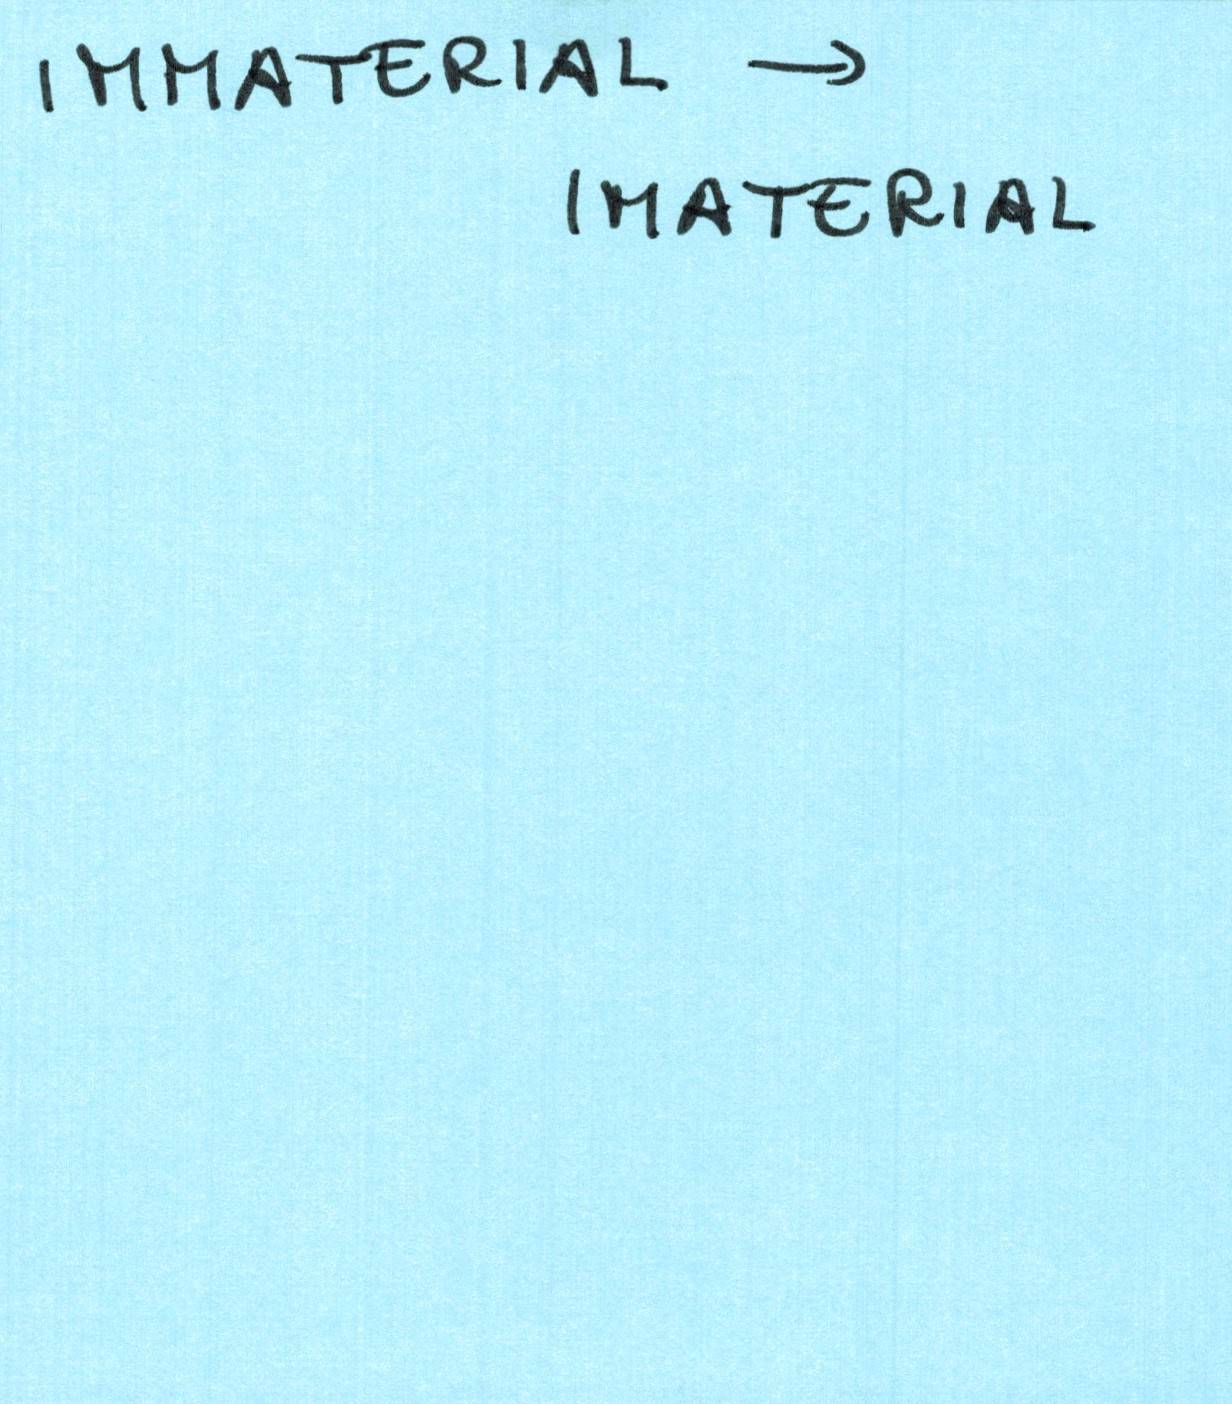 IMMATERIAL →
IMATERIAL